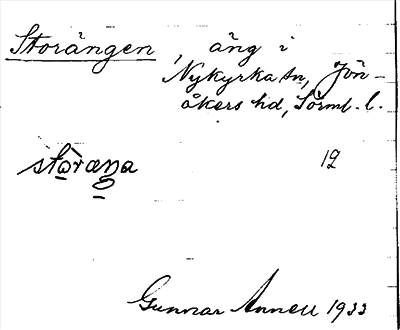 Storängen, äng i
Nykyrka sn, Jön-
åkers hd, Sörml. l.
12
Gunnar Annell 1933